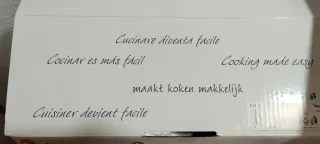 Cucinare diventa facile
Cocinar es más fácil
Cooking made easy
maakt koken makkelijk
Cuisiner devient facile